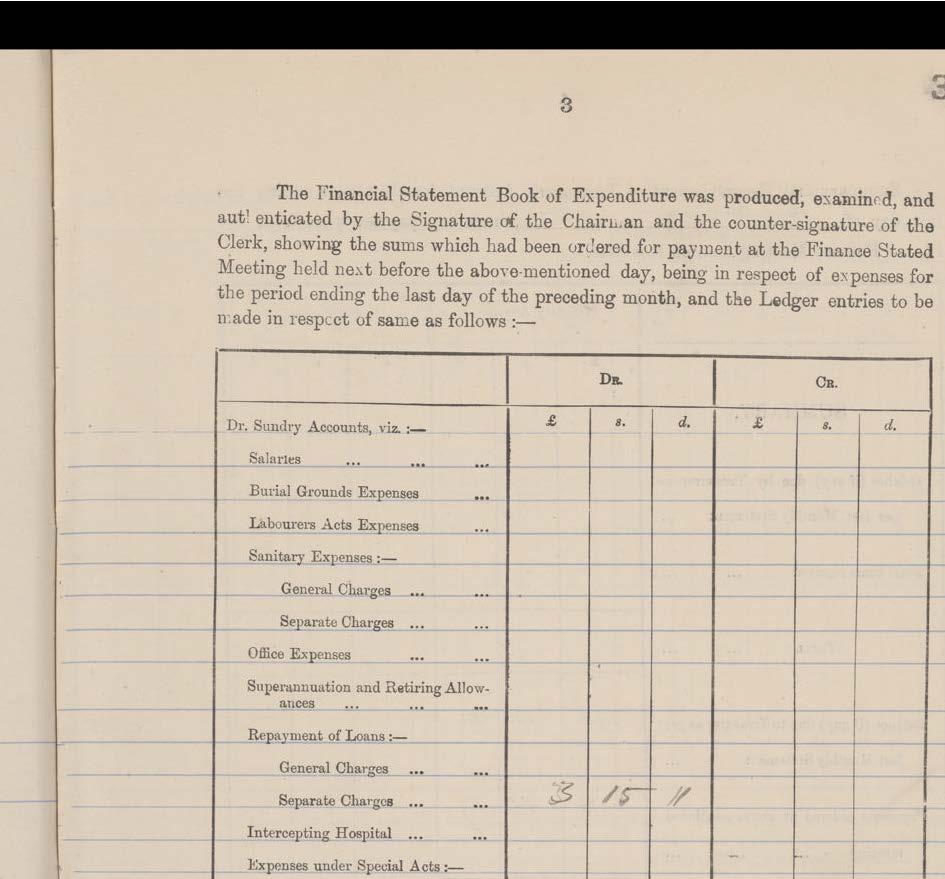 3
3
The Financial Statement Book of Expenditure was produced, examined, and
authenticated by the Signature of the Chairman and the counter-signature of the
Clerk, showing the sums which had been ordered for payment at the Finance Stated
Meeting held next before the above-mentioned day, being in respect of expenses for
the period ending the last day of the preceding month, and the Ledger entries to be
made in respect of same as follows :—
DR. CR.
Dr. Sundry Accounts, viz. :— £ s. d. £ s. d.
Salaries ... ... ...
Burial Grounds Expenses ...
Labourers Acts Expenses ...
Sanitary Expenses :—
General Charges ... ...
Separate Charges ... ...
Office Expenses ... ...
Superannuation and Retiring Allow-
ances ... ... ...
Repayment of Loans :—
General Charges ... ...
Separate Charges ... ... 3 15 11
Intercepting Hospital ... ...
Expenses under Special Acts :—